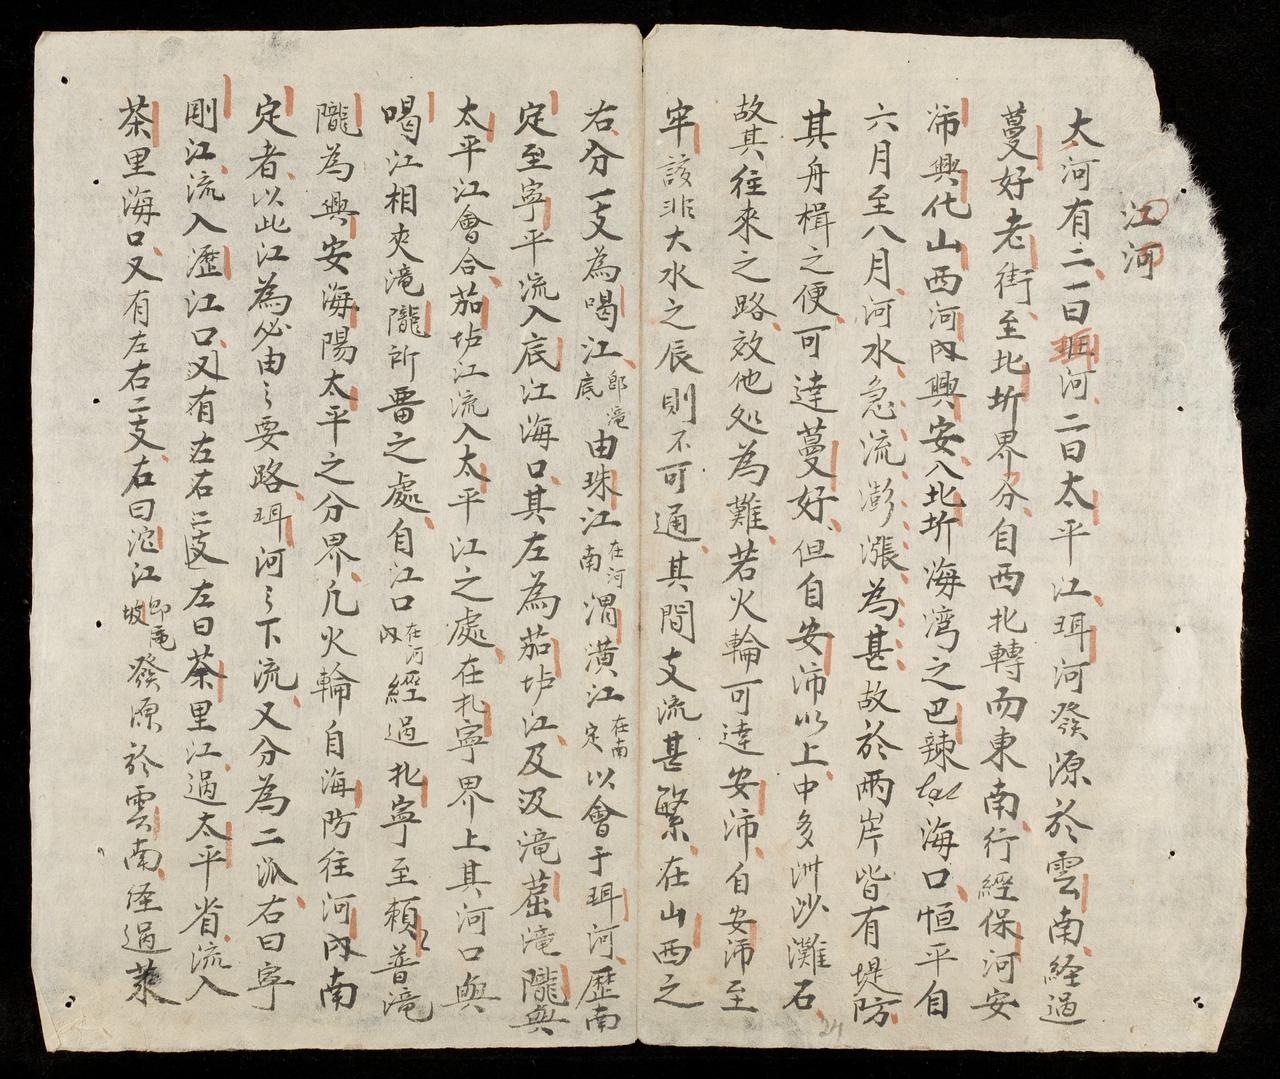 江河
大河有二一曰珥河二曰太平江珥河發源於雲南経過
蔓好老街至北圻界分自西北轉而東南行經保河安
沛興化山西河內興安八北圻海湾之巴辣lạt海口恒平自
六月至八月河水急流澎漲為甚故於兩岸皆有堤防
其舟楫之便可達蔓好但自安沛以上中多洲沙灘石
故其往來之路效他処為難若火輪可達安沛自安沛至
牢該非大水之辰則不可通其間支流甚繁在山西之
右分一支為喝江即滝底由珠江在河南渭潢江在南定以會于珥河歷南
定至寧平流入底江海口其左為茄垆江及汲滝䓛滝隴與
太平江會合茄垆江流入太平江之處在北寧界上其河口與
喝江相夾滝隴所畱之處自江口在河內經過北寧至賴普滝
隴為興安海陽太平之分界凢火輪自海防往河內南
定者以此江為必由之要路珥河之下流又分為二派右曰寧
剛江流入瀝江口又有左右二支左曰茶里江過太平省流入
茶里海口又有左右二支右曰沱江即滝坡發源於雲南経過萊
24